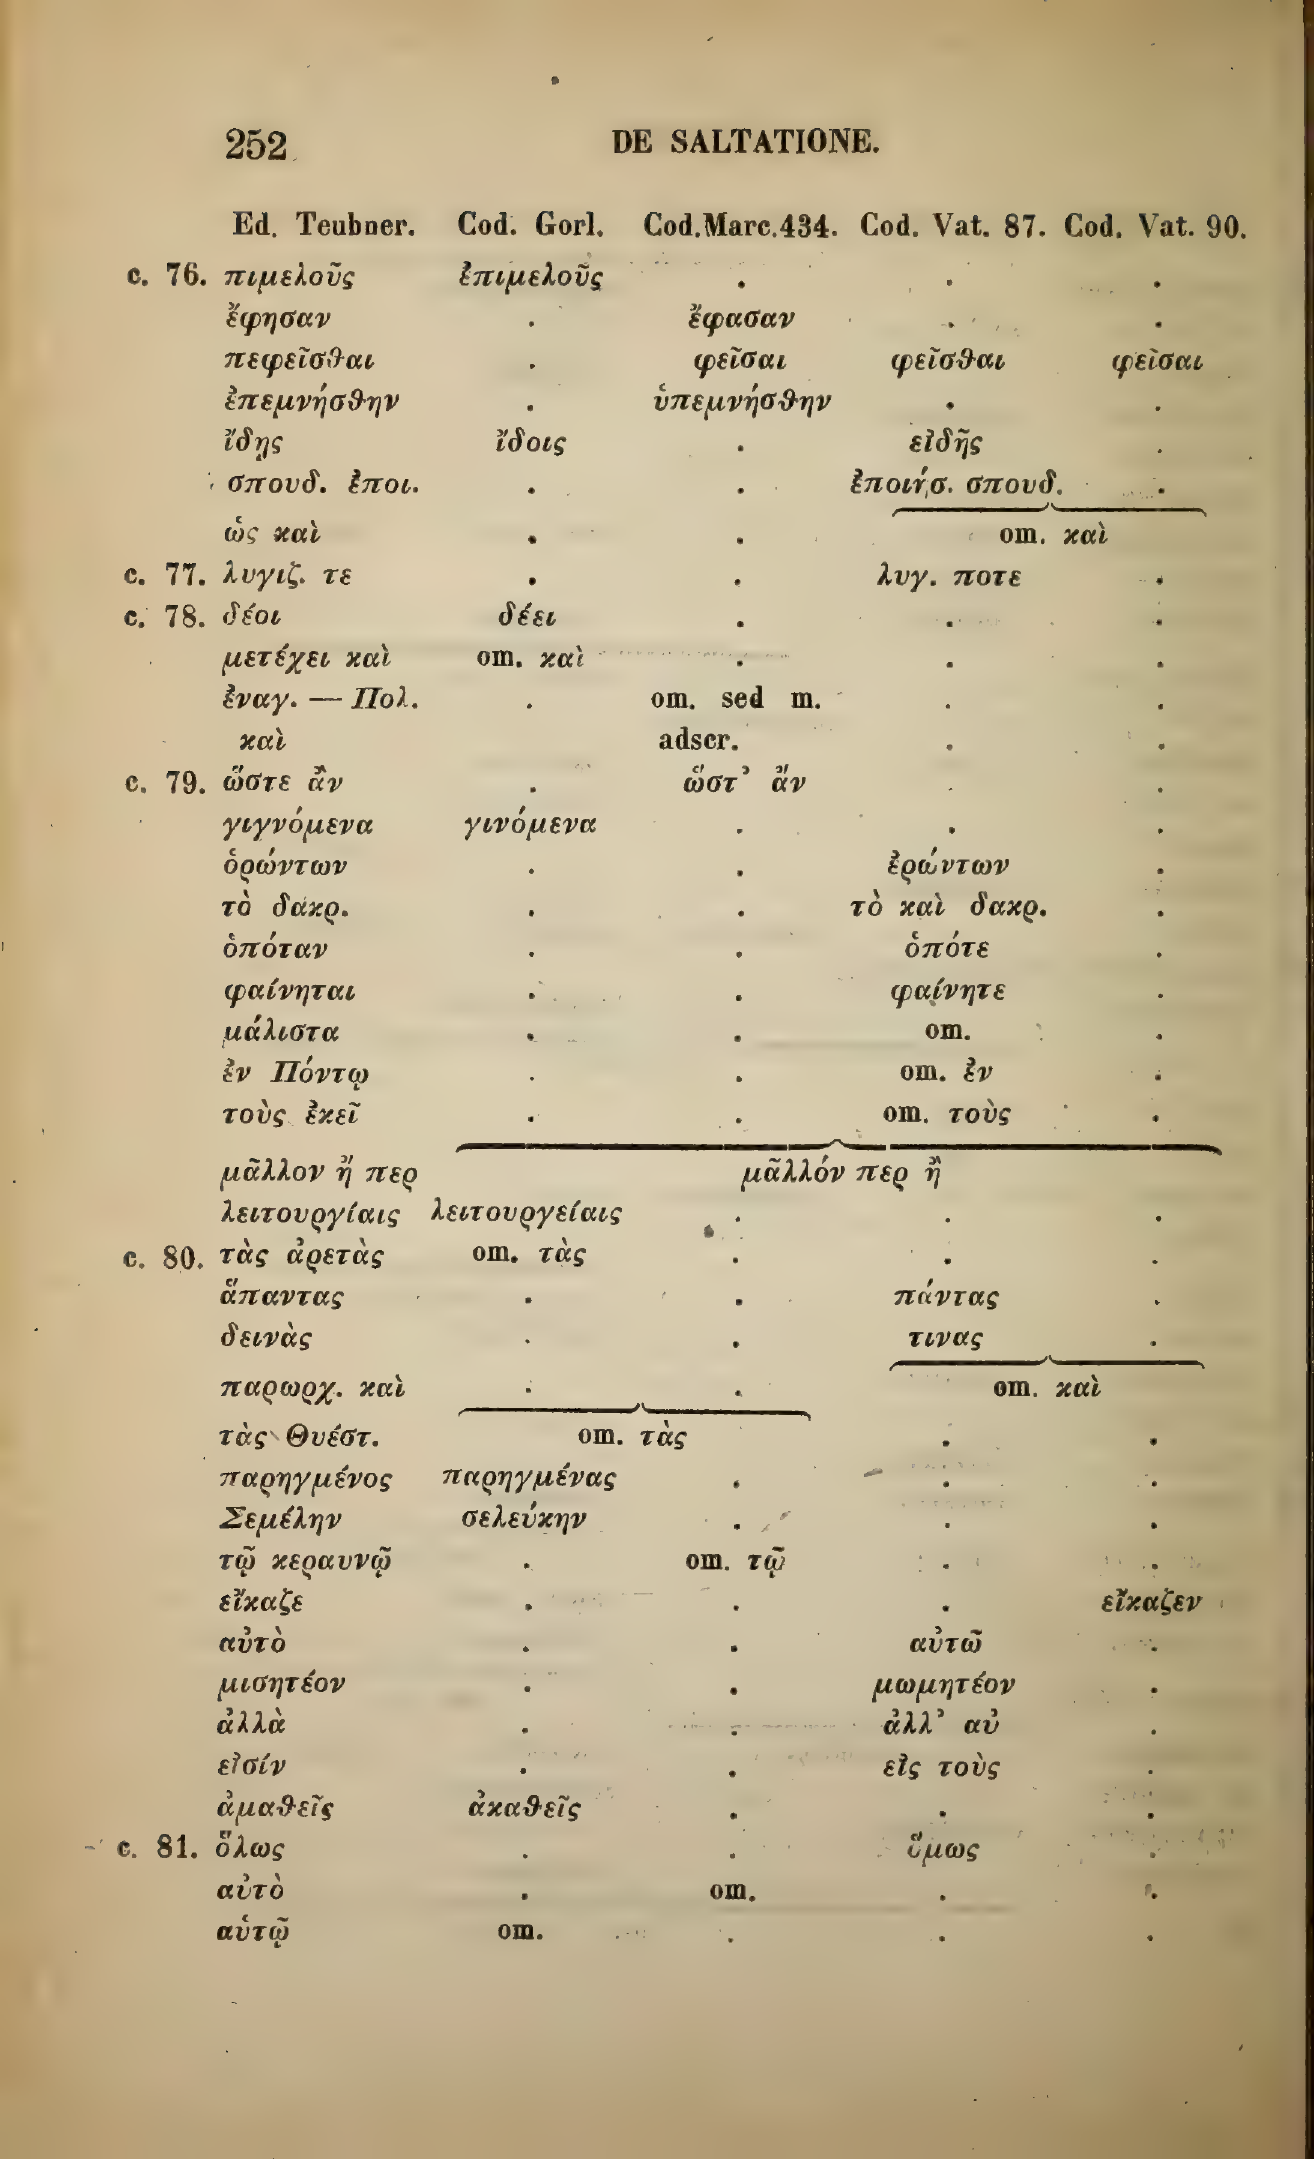 252 DE SALTATIONE.
Ed. Teubner. Cod. Gorl. Cod. Marc. 434. Cod. Vat. 87. Cod. Vat. 90.
c. 76. πιμελοῦς ἐπιμελοῦς . . .
ἔφησαν . ἔφασαν . .
πεφεῖσθαι . φεῖσαι φεῖσθαι φεῖσαι
ἐπεμνήσθην . ὑπεμνήσθην . .
ἴδῃς ἴδοις . εἰδῇς .
σπουδ. ἐποι. . . ἐποιήσ. σπουδ. .
ὡς καὶ . . om. καὶ
c. 77. λυγιζ. τε . . λυγ. ποτε .
c. 78. δέοι δέει . . .
μετέχει καὶ om. καὶ . . .
ἐναγ. — Πολ. . om. sed m. . .
καὶ adscr. . .
c. 79. ὥστε ἂν . ὥστ᾽ ἄν . .
γιγνόμενα γινόμενα . . .
ὁρώντων . . ἐρώντων .
τὸ δακρ. . . τὸ καὶ δακρ. .
ὁπόταν . . ὁπότε .
φαίνηται . . φαίνητε .
μάλιστα . . om. .
ἐν Πόντῳ . . om. ἐν .
τοὺς ἐκεῖ . . om. τοὺς .
μᾶλλον ἤ περ μᾶλλόν περ ἢ
λειτουργίαις λειτουργείαις . . .
c. 80. τὰς ἀρετὰς om. τὰς . . .
ἅπαντας . . πάντας .
δεινὰς . . τινας .
παρωρχ. καὶ . . om. καὶ
τὰς Θυέστ. om. τὰς . .
παρηγμένος παρηγμένας . . .
Σεμέλην σελεύκην . . .
τῷ κεραυνῷ . om. τῷ . .
εἴκαζε . . . εἴκαζεν
αὐτὸ . . αὐτῶ .
μισητέον . . μωμητέον .
ἀλλὰ . . ἀλλ᾽ αὐ .
εἰσίν . . εἰς τοὺς .
ἀμαθεῖς ἀκαθεῖς . . .
c. 81. ὅλως . . ὅμως .
αὐτὸ . om. . .
αὐτῷ om. . . .